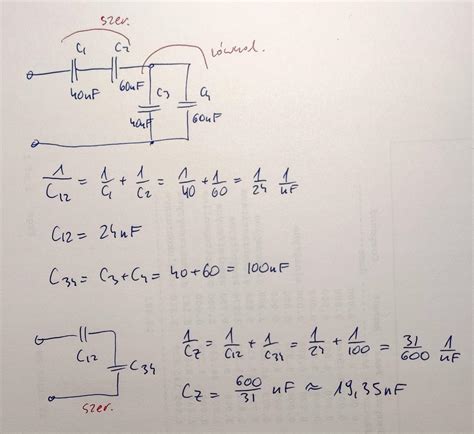 szer.
C1 C2 równol.
40nF 60nF C3 40nF C4 60nF
1/C12 = 1/C1 + 1/C2 = 1/40 + 1/60 = 1/24 1/nF
C12 = 24nF
C34 = C3 + C4 = 40 + 60 = 100nF
C12 C34
szer.
1/Cz = 1/C12 + 1/C34 = 1/24 + 1/100 = 31/600 1/nF
Cz = 600/31 nF ≈ 19,35nF